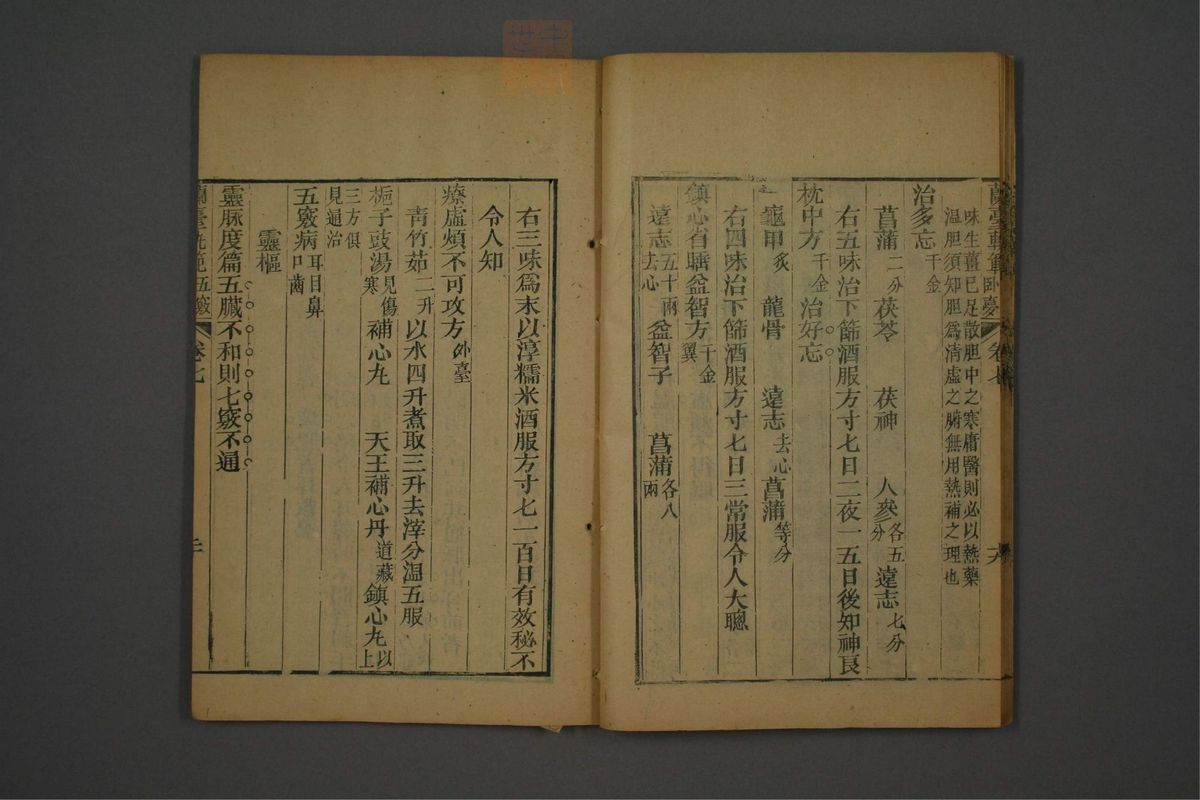 蘭臺軌範 卧夢 卷七 六
味生薑已足散胆中之寒庸醫則必以熱藥
温胆須知胆爲清虛之腑無用熱補之理也
治多忘千金
菖蒲二分 茯苓 茯神 人參各五分 遠志七分
右五味治下篩酒服方寸七日二夜一五日後知神良
枕中方千金 治好忘
龜甲炙 龍骨 遠志去心 菖蒲等分
右四味治下篩酒服方寸七日三常服令人大聰
鎮心省睡益智方千金翼
遠志五十兩去心 益智子 菖蒲各八兩
右三味爲末以淳糯米酒服方寸七一百日有效秘不
令人知
療虛煩不可攻方外臺
靑竹茹二升 以水四升煮取三升去滓分温五服
梔子豉湯見傷寒 補心丸 天王補心丹道藏 鎮心丸以上
三方俱見通治
五竅病耳目鼻口齒
靈樞
靈脉度篇五臟不和則七竅不通
蘭臺軌範 五竅 卷七